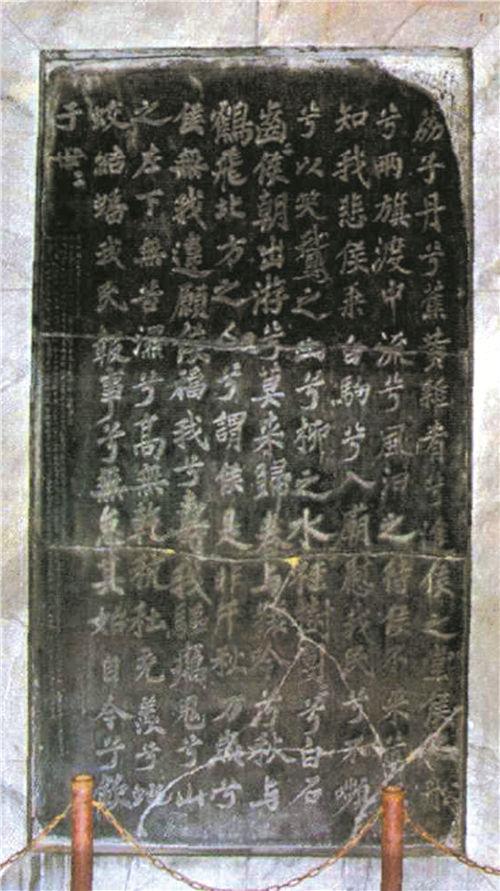 荔子丹兮蕉黄雜肴兮進侯之堂侯之船
兮兩旗渡中流兮風汩之待侯不來兮不
知我悲侯乘白駒兮入廟慰我民兮不嚬
兮以笑鵝之山兮柳之水桂樹團〻兮白石
齒〻侯朝出游兮莫來歸春與猨吟兮秋與
鶴飛北方之人兮謂侯是非千秋万歲兮
侯無我違願侯福我兮壽我驅癘鬼兮山
之左下無苦濕兮高無乾秔稌充羨兮虵
蛟結蟠我民報事兮無怠其始自今兮欽
于世〻